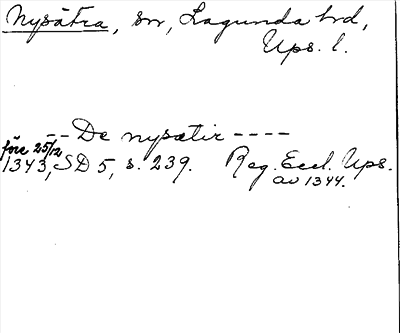 Nysätra, sn, Lagunda hd,
Ups. l.
-- De nysætir ----
före 25/12
1343, SD 5, s. 239. Reg. Eccl. Ups.
av 1344.